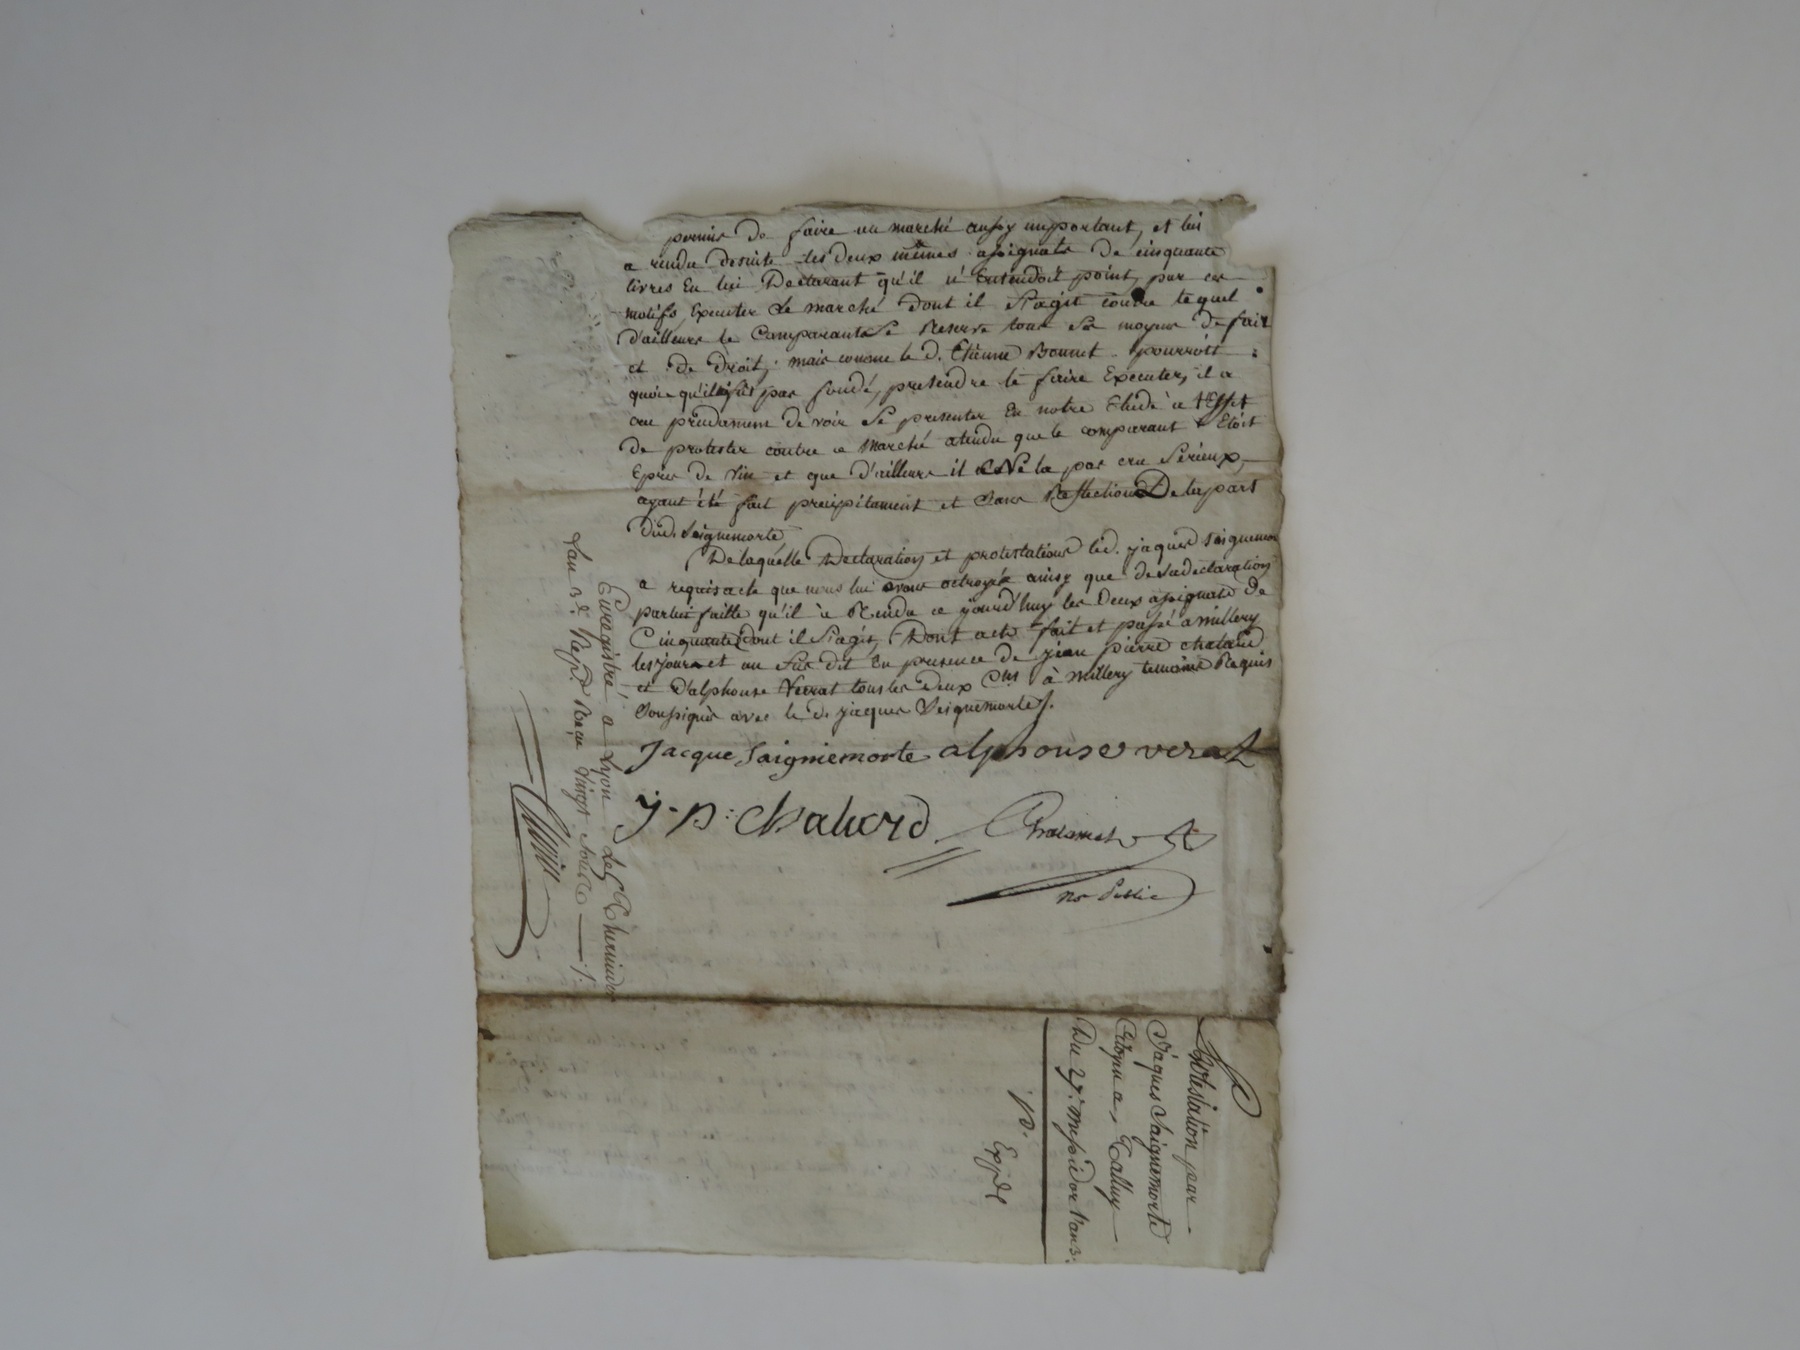 permis de faire un marché aussy important, et lui
a rendu desuite les deux mêmes assignats de cinquante
livres En lui Declarant qu'il n'Entendoit point, par ces
motifs, Executer Le marché dont il s'agit contre lequel
d'ailleurs le Comparant se Reserve tous ses moyens de fait
et de droit, mais comme le d. Etienne Bonnet pourroit
quoi qu'il fût pas fondé, pretendre le faire Executer, il a
cru prudament devoir se presenter En notre Etude a l'Effet
de protester contre ce marché atendu que le comparant Etoit
Epris de vin et que d'ailleurs il Ne la pas cru Serieux,
ayant été fait precipitament et sans Reflections De la part
dud. Seignemorte
De laquelle Declaration et protestations led. jaques Seignemor
a requis acte que nous lui avons octroyée ainsy que de sa declaration
par lui faitte qu'il a Rendu ce jourd'huy les Deux assignats de
Cinquante dont il s'agit, Dont acte fait et passé a millery
les jour et an sus dit En presence de jean pierre chalard
et d'alphonse Verrat tous les deux Cens à Millery temoins Requis
Soussignés avec le d. jacques Seignemorte /.
Jacque Saignemorte alphonse verat
j. p. chalard
nre Public
Enregistré a Lyon Le 5 Thermidor
Lan 3e. Repd. Reçu vingt sous
Protestation par
Jâques Saignemorte
Citoyen a Talluy
Du 27. Messidor l'an 3.
Expde